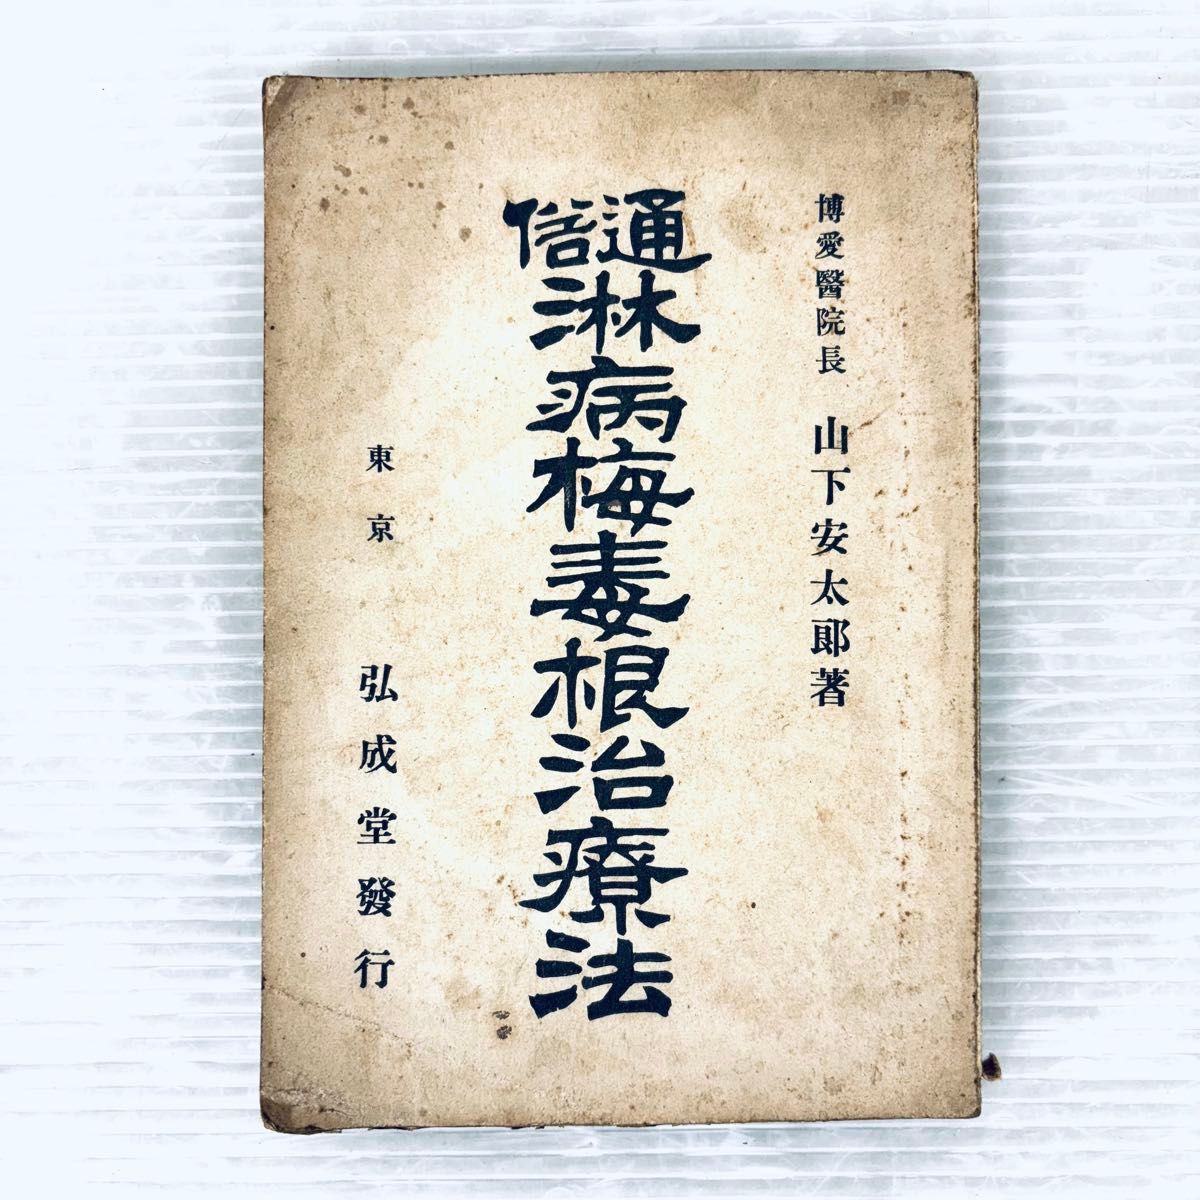 博愛醫院長 山下安太郎著
通俗淋病梅毒根治療法
東京 弘成堂發行